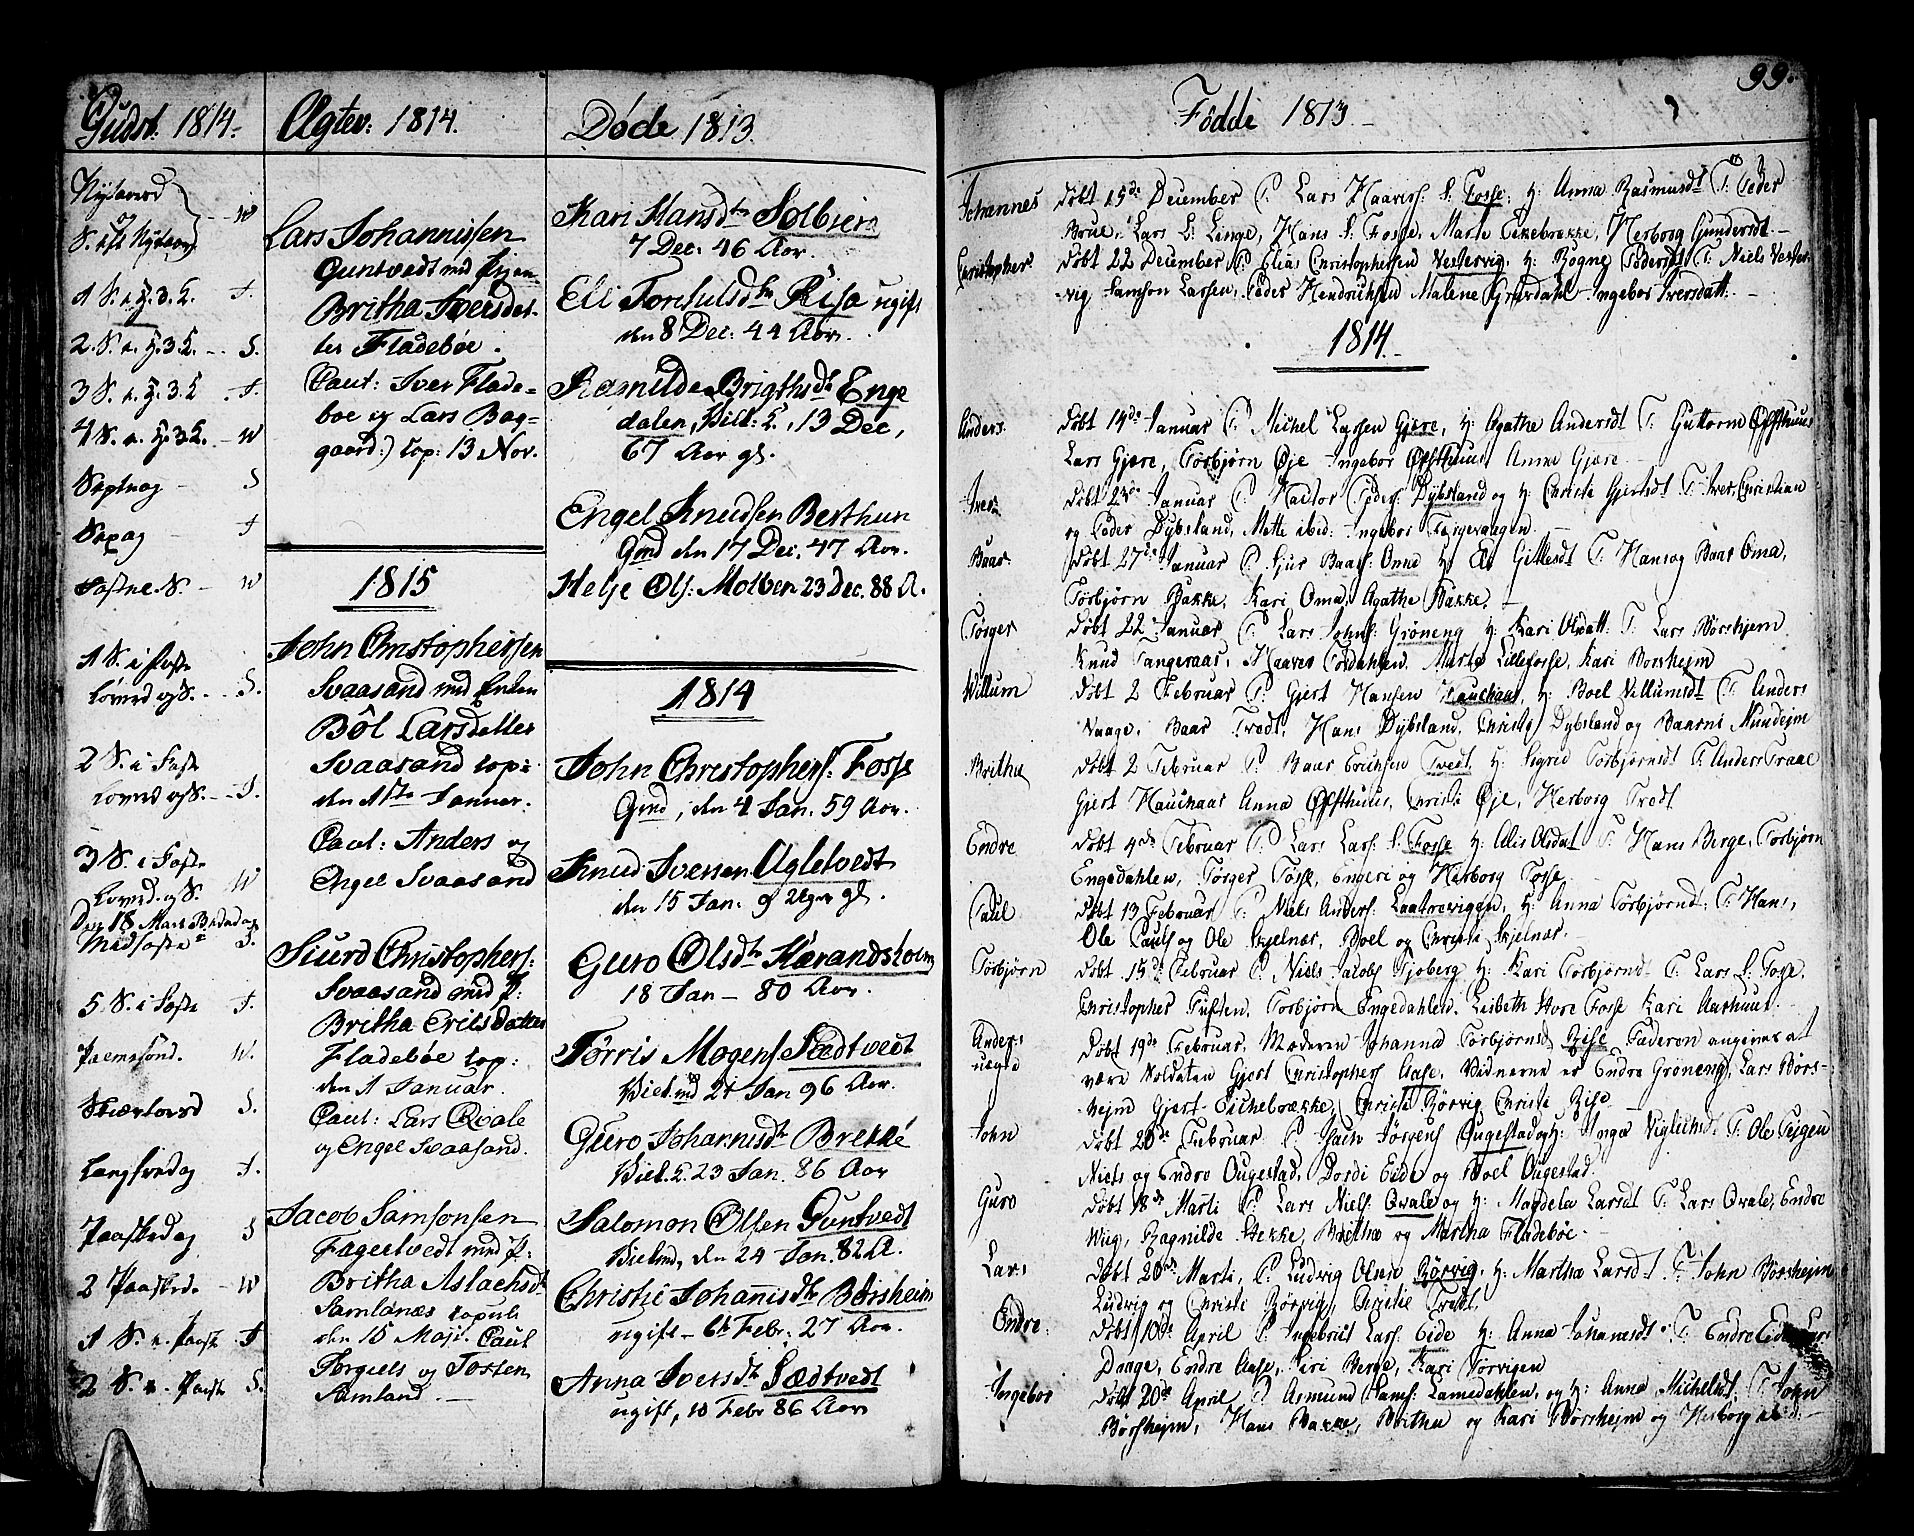 Gudst. 1814.
Nytaarsd
og
S. eft Nytaar
W
1 S. e. H. 3. K. J.
2. S. e. H. 3 K. S.
3 S. e. H. 3 K. J.
4 S. e. H. 3 K. W
S
J
Fastne. S. W
1 S. i Faste
S.
2 S. i Faste
J.
3 S. i Faste
W
Den 18 Marti Bededag
Midfaste S.
5 S. i Faste J.
W.
Skiærtorsd S.
Langfredag J.
Paaskedag S
2 Paasked. W
1 S. e. Paaske J
2 S. e. Paaske S.
Ægtev: 1814.
Lars Johannissen
Guntvedt med Pigen
Britha Iversdat-
ter Fladebøe.
Caut: Iver Flade-
boe og Lars Bag-
gaard:) Cop: 13 Nov.
1815
John Christophersen
Svaasand med Enken
Bôl Larsdatter
Svaasand cop:
den 1ste Januer.
Caut: Anders og
Engel Svaasand
Siurd Christophers:
Svaasand med P:
Britha Erilsdatter
Fladebøe cop:
den 1 Januar.
Caut: Lars Qvale
og Engel Svaasand.
Jacob Samsonsen
Fagertvedt med P:
Britha Aslachsdr
Samlanæs copule
den 15 Maji. Caut
Torgiels og Tosten
Samland.
Døde 1813.
Kari Hansdtr Solbierg
7 Dec. 46 Aar.
Eli Torchilsdtr Riisa ugift
den 8 Dec: 44 Aar.
Ramilda Brigthsdtr Enge
dalen, 13 Dec,
67 Aar gl.
Engel Knudsen Berthun
Gmd den 17 Dec. 47 Aar.
Helje Ols: Molven 23 Dec. 88 A.
1814
John Christophers: Fosse
Gmd, den 4 Jan. 59 Aar.
Knud Iversen Agletvedt
den 15 Jan. 9 Uger gl.
Guro Olsdtr Hærandsholm
18 Jan – 80 Aar.
Tørris Mogens Sædtvedt
21 Jan 96 Aar.
Guro Johannisdtr Brekké
23 Jan. 86 Aar
Salomon Olsen Guntvedt
den 24 Jan. 82 A.
Christie Johannisdtr Børsheim
ugift – 6te Febr. 27 Aar.
Anna Iversdtr Sædtvedt
ugift, 10 Febr 86 Aar
99.
Födde 1813
Johannes Döbt 15de December F. Lars Haavers: S. Fosse, H: Anna Rasmusdt T: Peder
Brue, Lars L: Linge, Hans S: Fosse, Marte Eikebrække, Herborg Gundersdt.
Christopher Döbt 22 December F. Elias Christophersen Vestervig. H: Rögne Pedersdt T: Niels Vester
vig Samson Larsen, Peder Hendrichsen Malene Gravdahl Ingebor Iversdatt.
1814.
Anders Döbt 14de Januar F. Michel Larsen Gjære, H: Agathe Andersdt T: Guttorm Øfsthuus
Lars Gjære, Torbjørn Øje Ingebor Øfsthuus Anna Gjære
Iver Döbt 23de Januar F. Peders: Dybsland og H: Christi Gjertsdt T: Iver, Christian
og Peder Dybsland, Mette ibid: Ingebor
Baar Döbt 27de Januar F. Sjur Baars: Oma H: Eli Gitlesdt T: Hans og Baar Oma,
Torbjørn Bakke, Kari Oma, Agathe Bakke.
Torger Döbt 22 Januar F. Lars Johns: Gröneng H: Kari Olsdatt. T: Lars Börshejm
Knud Tangeraas, Haaver Tordahlen. Marta Lillefosse, Kari Borshejm
Villum Döbt 2 Februar F: Gjert Hansen Hauchaas, H: Boel Villumsdt T: Anders
Vaage, Baar Tvedt, Hans Dybsland, Christi Dybsland og Baarni Mundejm
Brithe Döbt 2 Februar F. Baar Erichsen Tvedt. H: Sigrid Torbjørnsdt T: Anders Traae
Gjert Hauchaas Anna Øfsthuus, Christi Øje, Herborg Tvedt
Endre Döbt 4de Februar F: Lars Lars: S: Fosse H: Alis Olsdat T: Hans Berge, Torbjørn
Engedahlen, Törger Fosse, Engeri og Herborg Fosse.
Paul Döbt 13 Februar F. Niels Anders: Laatrevigen, H: Anna Torbjørnd: T: Hans,
Ole Pauls og Ole Skjelnæs, Boel og Christi Skjelnæs.
Torbjörn Döbt 15de Februar F. Niels Jacobs Tjoberg H: Kari Torbjørnsd: T: Lars S: Fosse,
Christopher Tuften, Torbjørn Engedahlen. Lisbeth Fosse Kari Aarhuus.
Anders Döbt 19de Februar. Moderen Johanna Torbjörnsd Rise Faderen angives at
uegte være Soldaten Gjert Christophers Aase. Vidnerne er Endre Gröneng, Lars Börs-
hejm Gjert Eichebrække, Christi Rörvig Christi Rise.
John Döbt 20de Februar F. Jörgens Ougestad og H: Inga T: Ole Tejgen
Niels og Endre Ougestad, Dordi Eide og Boel Ougestad.
Guro Döbt 18de Marti F. Lars Niels: Qvale og H: Magdela Larsdt T: Lars Qvale, Endre
Wiig, Ragnilde Stekke, Brithæ og Martha Fladebøe.
Lars Döbt 20de Marti, F: Ludvig Olsen Rörvig, H: Martha Larsdt T: John Börshejm
Ludvig og Christi Rörvig, Christie Tvedt.
Endre Döbt 10de April F. Ingebrigt Lars: Eide H: Anna Johansdt T: Endre Eide Lars
Drage, Endre Aase, Siri Berge, Kari Törvigen
Ingebor Döbt 20de April F. Asmund Sams: Lamedahlen, og H: Anna Michelsdt, T: John
Börshejm, Hans Bakke, Britha og Kari Börshejm og Herborg ibid.